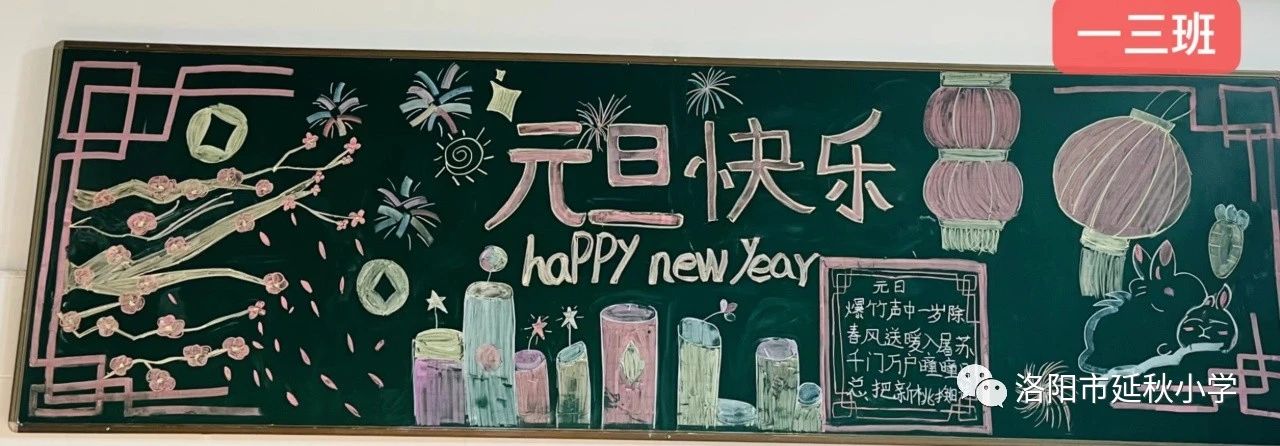 一三班
元旦快乐
haPPY new Year
元日
爆竹声中一岁除
春风送暖入屠苏
千门万户瞳瞳
总把新桃换
洛阳市延秋小学